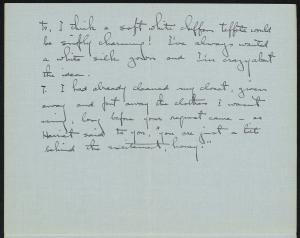 to, I think a soft white chiffon taffeta would
be simply charming! I've always wanted
a white silk gown and I'm crazy about
the idea.
7. I had already cleaned my closet, given
away and put away the clothes I wasn't
using, long before your request came - as
Harriet said to you, "you are just a bit
behind the excitement, honey!"